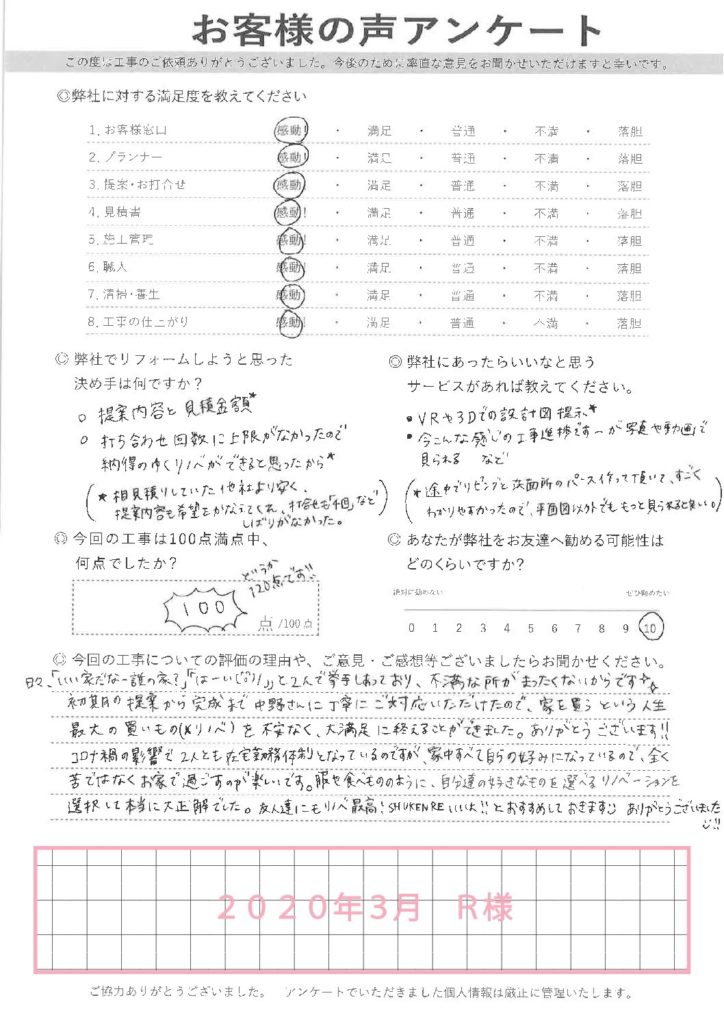 お客様の声アンケート
この度は工事のご依頼ありがとうございました。今後のために率直な意見をお聞かせいただけますと幸いです。
◎弊社に対する満足度を教えてください
1. お客様窓口 感動! ・ 満足 ・ 普通 ・ 不満 ・ 落胆
2. プランナー 感動! ・ 満足 ・ 普通 ・ 不満 ・ 落胆
3. 提案・お打合せ 感動! ・ 満足 ・ 普通 ・ 不満 ・ 落胆
4. 見積書 感動! ・ 満足 ・ 普通 ・ 不満 ・ 落胆
5. 施工管理 感動! ・ 満足 ・ 普通 ・ 不満 ・ 落胆
6. 職人 感動! ・ 満足 ・ 普通 ・ 不満 ・ 落胆
7. 清掃・養生 感動! ・ 満足 ・ 普通 ・ 不満 ・ 落胆
8. 工事の仕上がり 感動! ・ 満足 ・ 普通 ・ 不満 ・ 落胆
◎ 弊社でリフォームしようと思った
決め手は何ですか?
○ 提案内容と見積金額*
○ 打ち合わせ回数に上限がなかったので
納得のゆくリノベができると思ったから*
(* 相見積りしていた他社より安く、
提案内容も希望をかなえてくれ、打合せも「4回」など
しばりがなかった。)
◎ 弊社にあったらいいなと思う
サービスがあれば教えてください。
• VRや3Dでの設計図提示*
• 今こんな感じの工事進捗ですーが写真や動画で
見られる など
(* 途中でリビングと洗面所のパース作って頂いて、すごく
わかりやすかったので、平面図以外でももっと見られると良い。)
◎ 今回の工事は100点満点中、
何点でしたか?
どうか
120点です!!
100 点 /100点
◎ あなたが弊社をお友達へ勧める可能性は
どのくらいですか?
絶対に勧めない ぜひ勧めたい
0 1 2 3 4 5 6 7 8 9 10
◎ 今回の工事についての評価の理由や、ご意見・ご感想等ございましたらお聞かせください。
日々、「いい家だな〜誰の家?」「はーい(^^)/」と2人で挙手しあっており、不満な所がまったくないからです
初期の提案から完成まで中野さんに丁寧にご対応いただけたので、家を買うという人生
最大の買いもの(×リノベ)を不安なく、大満足に終えることができました。ありがとうございます!!
コロナ禍の影響で2人とも在宅勤務体制となっているのですが、家中すべて自らの好みになっているので、全く
苦ではなくお家で過ごすのが楽しいです。服や食べもののように、自分達の好きなものを選べるリノベーションを
選択して本当に大正解でした。友人達にもリノベ最高!SHUKENREいいよ!!とおすすめしておきます ありがとうございました!!
2020年3月 R様
ご協力ありがとうございました。 アンケートでいただきました個人情報は厳正に管理いたします。